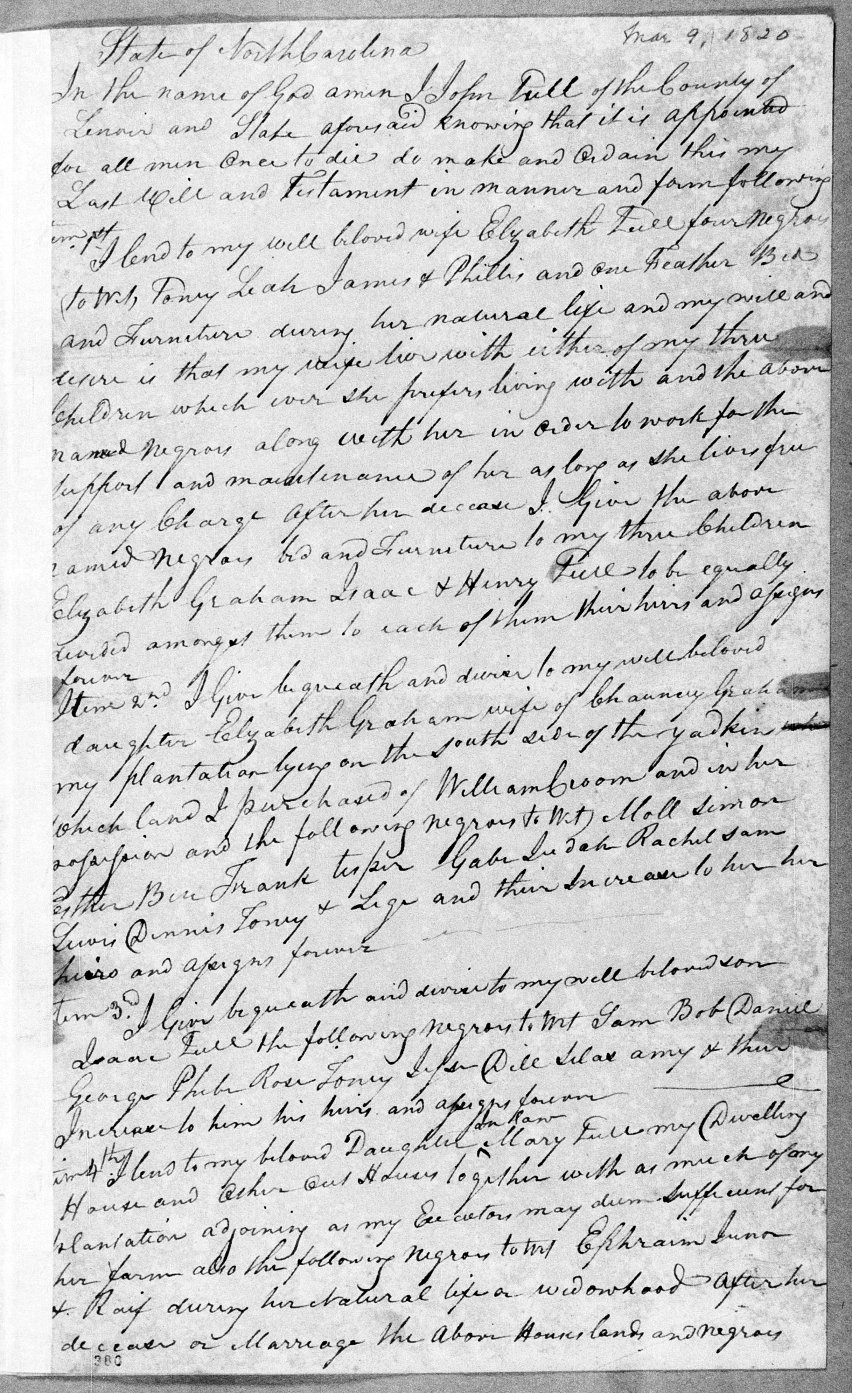 Mar 9, 1820
State of North Carolina
In the name of God amen I John Tull of the County of
Lenoir and State aforesaid knowing that it is appointed
for all men Once to die do make and Ordain this my
Last Will and Testament in manner and form following
1st I lend to my well beloved wife Elizabeth Tull four negroes
to Wit, Toney Leah James & Phillis and one Feather Bed
and Furniture during her natural life and my will and
desire is that my wife live with either of my three
Children which ever she prefers living with and the above
named negroes along with her in Order to work for the
support and maintenance of her as long as she lives free
of any Charge after her decease I Give the above
named negroes bed and Furniture to my three Children
Elizabeth Graham Isaac & Henry Tull to be equally
divided amongst them to each of them their heirs and assigns
forever
Item 2nd I Give bequeath and devise to my well beloved
daughter Elizabeth Graham wife of Chauncey Graham
my plantation lying on the South side of the yadkin
which land I purchased of William Croom and in her
possession and the following negroes to Wit, Moll Simon
Esther Ben Frank Gabe Judah Rachel Sam
Lewis Dennis Toney & Lige and their Increase to her her
heirs and assigns forever
Item 3d. I Give bequeath and devise to my well beloved son
Isaac Tull the following negroes to Wit Sam Bob Daniel
George Phebe Rose Toney Jesse Dill Silas amy & their
Increase to him his heirs and assigns forever
4th I lend to my beloved Daughter in Law Mary Tull my Dwelling
House and Other Out Houses together with as much of my
plantation adjoining as my Executors may deem sufficient for
her farm also the following negroes to Wit Ephraim Junor
& Raif during her Natural life or widowhood After her
decease or Marriage the Above Houses lands and negroes
380